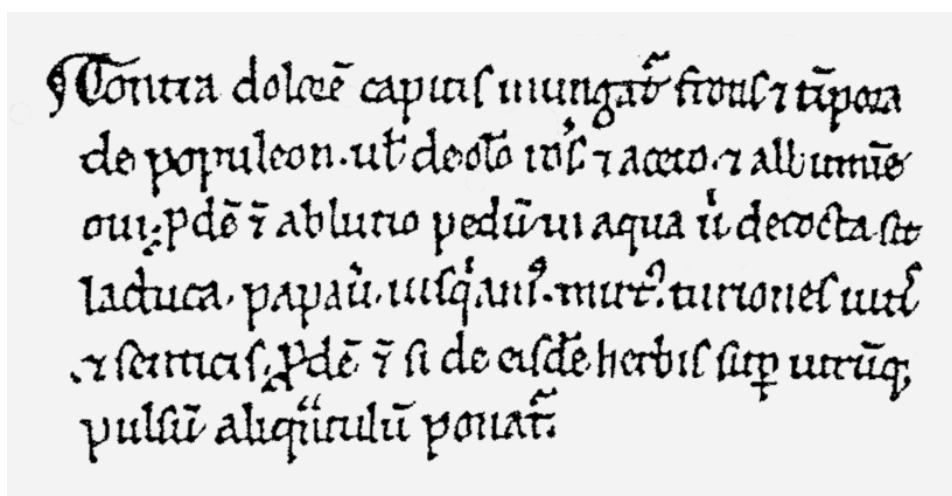 ¶ Contra dolorē capitis inungat᷑ frons ⁊ tīpora
de populeon. uł de oło ros̛ ⁊ aceto. ⁊ albumīe
oui. Pdē ē ablutio pedū in aqua uⁱ decocta sit
lactuca. papau̓. iusqⁱamꝰ. mirtꝰ. turiones uitis
⁊ senticis. Pdē ē si de eisdē herbis suꝑ utrūq;
pulsū aliqᵃntulū ponat᷑.